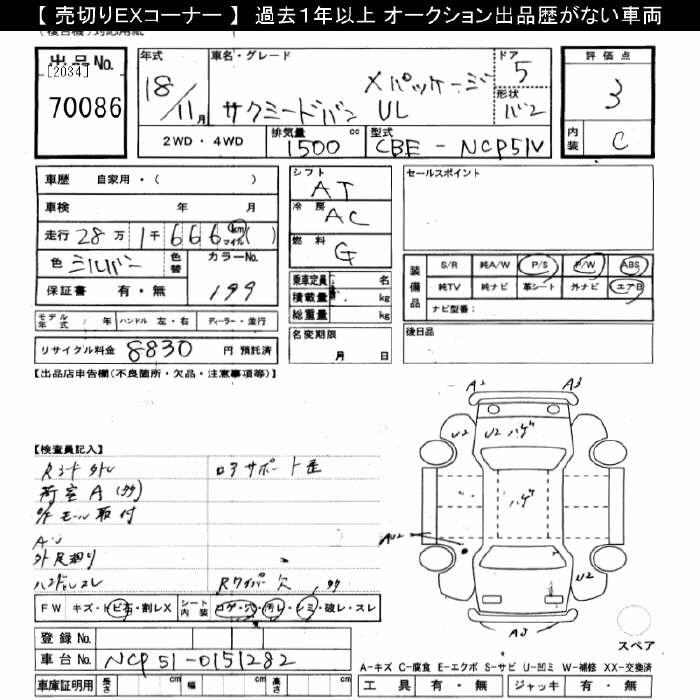 【 売切りEXコーナー 】 過去1年以上 オークション出品歴がない車両
出品No.
[2034]
70086
年式
18/11月
車名・グレード
Xパッケージ
サクシードバン UL
ドア
5
形状
バン
2WD・4WD
排気量 cc
1500
型式
CBE - NCP51V
評価点
3
内装
C
車歴 自家用・( )
車検 年 月
走行 28万1千666 km マイル ( )
色 シルバー 色替 カラーNo.
199
保証書 有・無
モデル年式 年 ハンドル 左・右 ディーラー・並行
リサイクル料金 8830 円 預託済
シフト
AT
冷房
AC
燃料
G
乗車定員 名
積載量 kg
総重量 kg
名変期限
月 日
セールスポイント
装備品
S/R 純A/W P/S P/W ABS
純TV 純ナビ 革シート 外ナビ エアB
ナビ型番:
後日品
【出品店申告欄(不良箇所・欠品・注意事項等)】
【検査員記入】
荷室A
モール取付
外足廻り
ハンドルスレ
ロアサポート歪
Rワイパー欠
FW キズ・トビ石・割レX シート内装 コゲ・穴・汚レ・シミ・破レ・スレ
登録No.
車台No. NCP51-0151282
車庫証明用 長さ cm 幅 cm 高さ cm
A1
A3
U2
U2 ハゲ
ハゲ
AU2
U2
スペア
A-キズ C-腐食 E-エクボ S-サビ U-凹ミ W-補修 XX-交換済
工具 有・無 ジャッキ 有・無